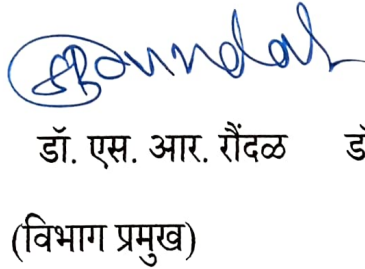 SRoundal
डॉ. एस. आर. रौंदळ
(विभाग प्रमुख)